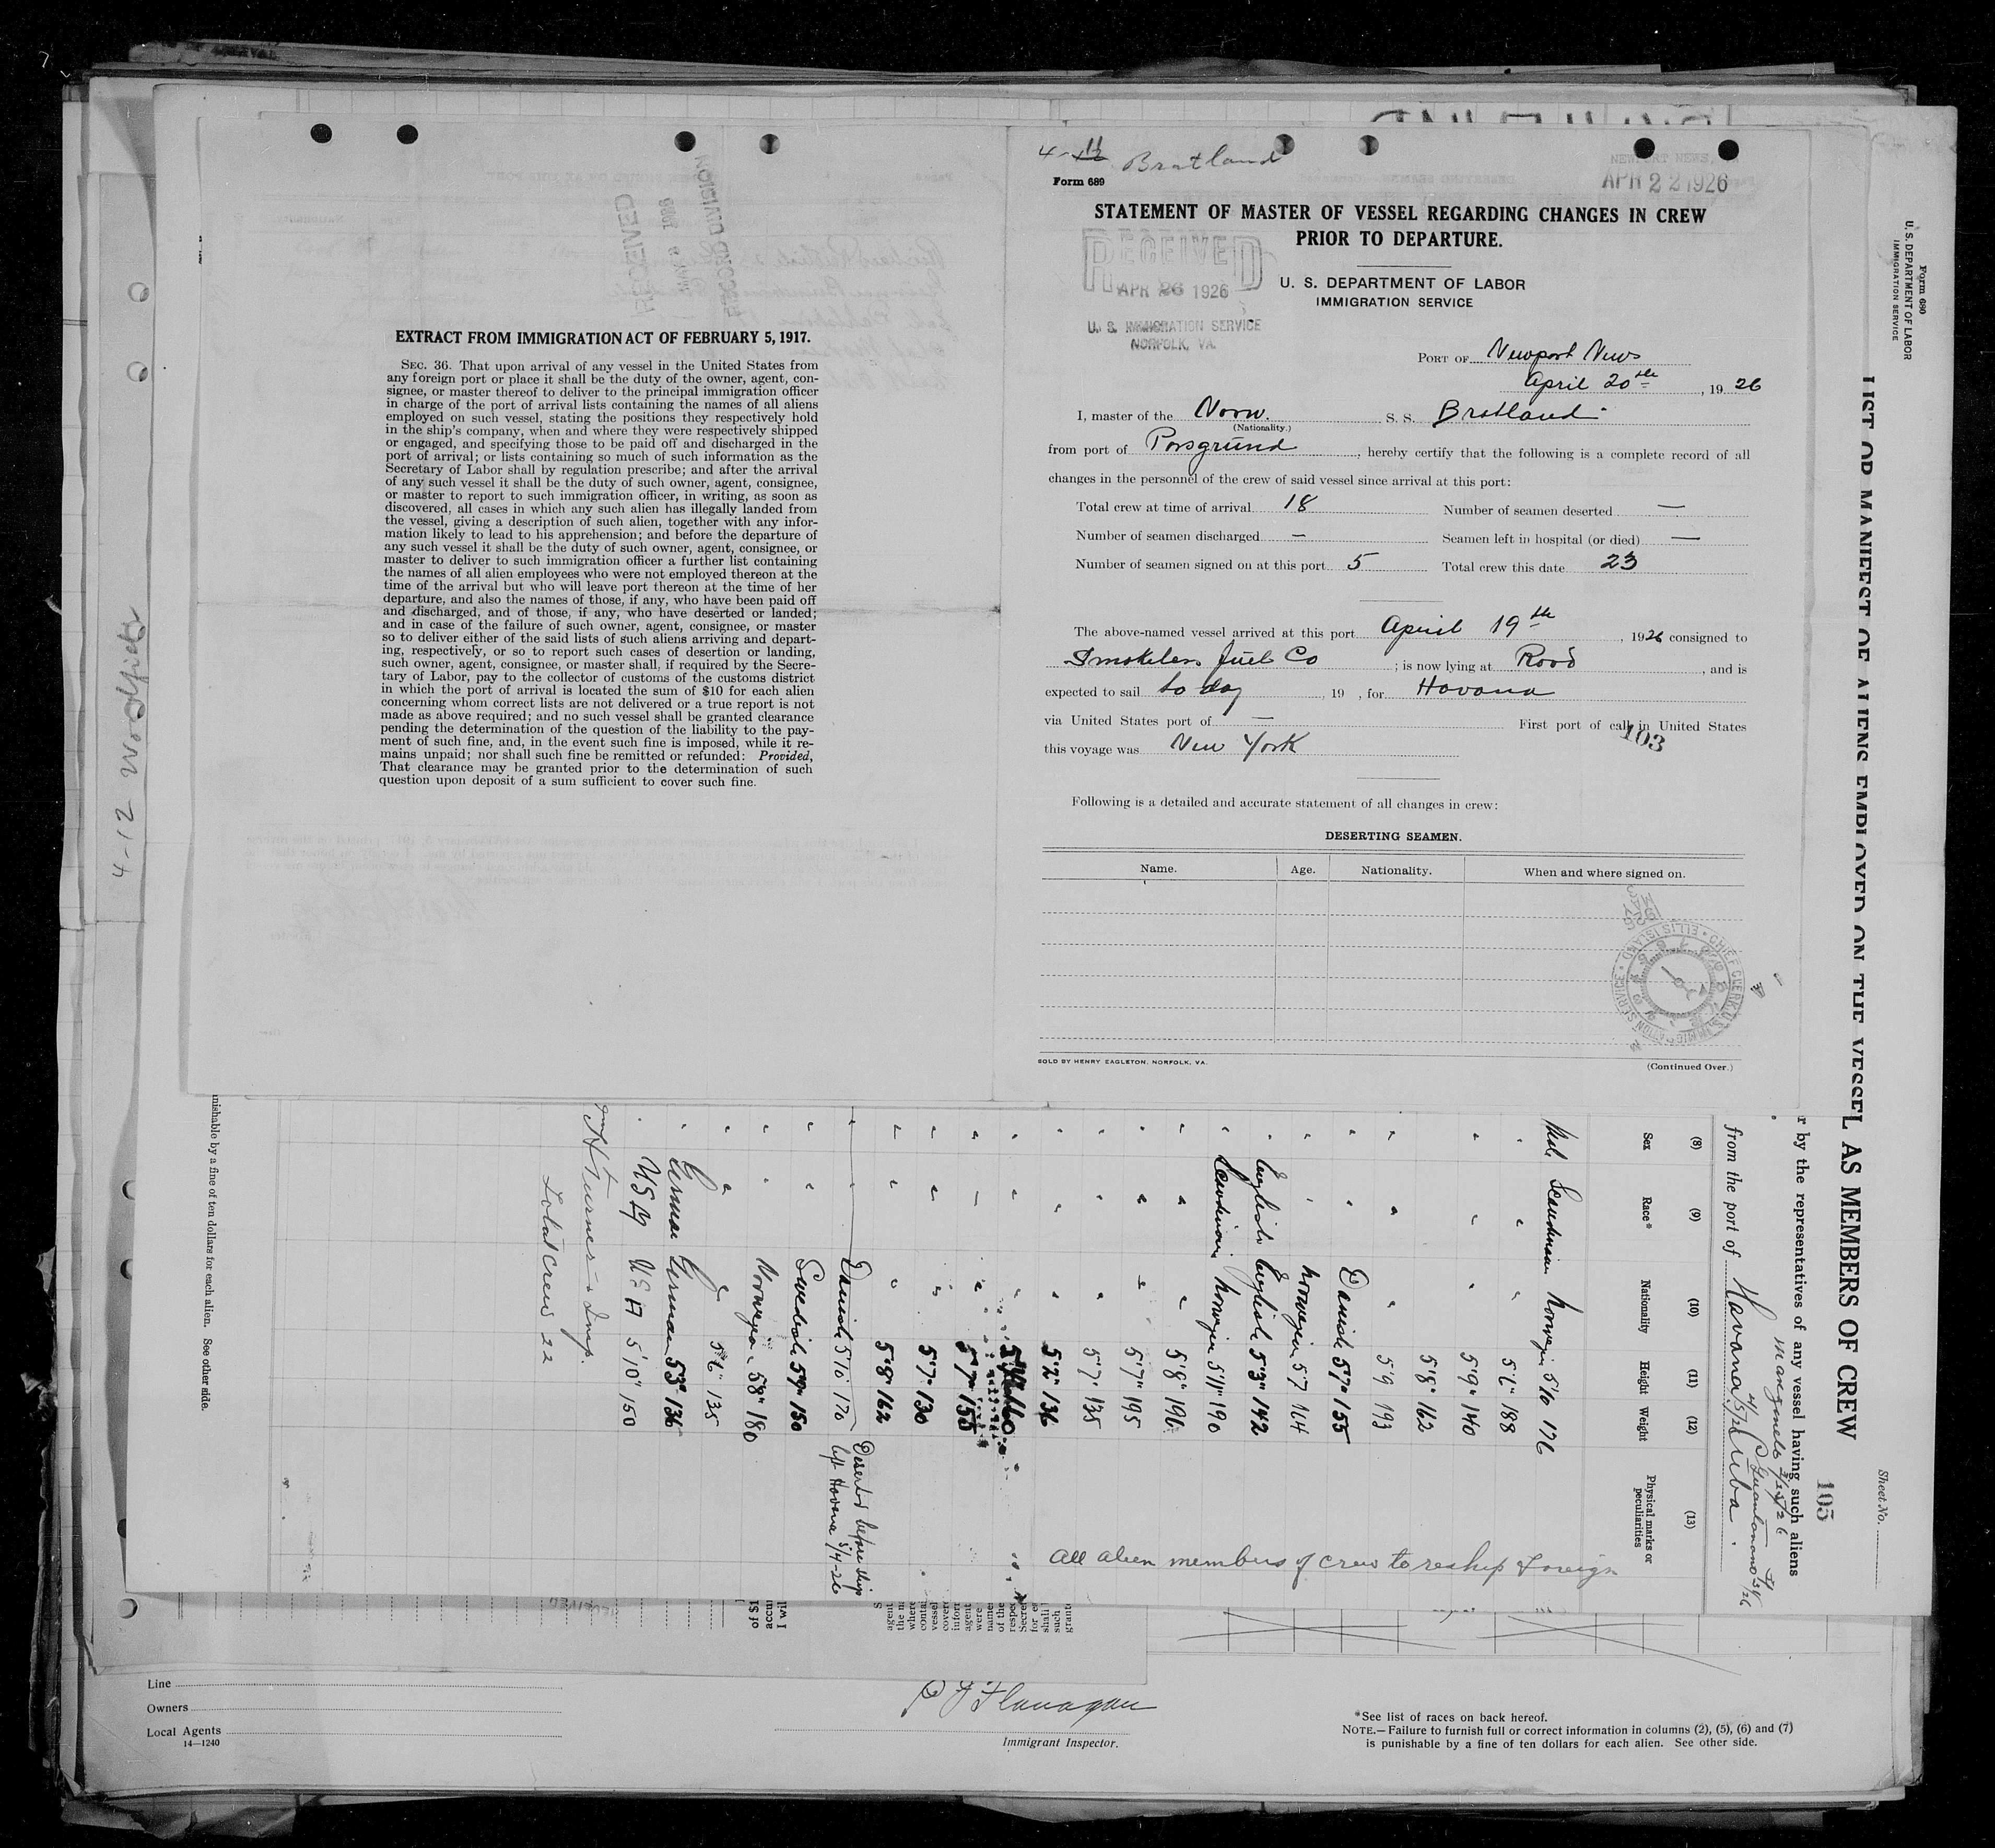 EXTRACT FROM IMMIGRATION ACT OF FEBRUARY 5, 1917.
SEC. 36. That upon arrival of any vessel in the United States from
any foreign port or place it shall be the duty of the owner, agent, con-
signee, or master thereof to deliver to the principal immigration officer
in charge of the port of arrival lists containing the names of all aliens
employed on such vessel, stating the positions they respectively hold
in the ship's company, when and where they were respectively shipped
or engaged, and specifying those to be paid off and discharged in the
port of arrival; or lists containing so much of such information as the
Secretary of Labor shall by regulation prescribe; and after the arrival
of any such vessel it shall be the duty of such owner, agent, consignee,
or master to report to such immigration officer, in writing, as soon as
discovered, all cases in which any such alien has illegally landed from
the vessel, giving a description of such alien, together with any infor-
mation likely to lead to his apprehension; and before the departure of
any such vessel it shall be the duty of such owner, agent, consignee, or
master to deliver to such immigration officer a further list containing
the names of all alien employees who were not employed thereon at the
time of the arrival but who will leave port thereon at the time of her
departure, and also the names of those, if any, who have been paid off
and discharged, and of those, if any, who have deserted or landed;
and in case of the failure of such owner, agent, consignee, or master
so to deliver either of the said lists of such aliens arriving and depart-
ing, respectively, or so to report such cases of desertion or landing,
such owner, agent, consignee, or master shall, if required by the Secre-
tary of Labor, pay to the collector of customs of the customs district
in which the port of arrival is located the sum of $10 for each alien
concerning whom correct lists are not delivered or a true report is not
made as above required; and no such vessel shall be granted clearance
pending the determination of the question of the liability to the pay-
ment of such fine, and, in the event such fine is imposed, while it re-
mains unpaid; nor shall such fine be remitted or refunded: Provided,
That clearance may be granted prior to the determination of such
question upon deposit of a sum sufficient to cover such fine.
4-11 Bratland
Form 689
NEWPORT NEWS,
APR 22 1926
STATEMENT OF MASTER OF VESSEL REGARDING CHANGES IN CREW
PRIOR TO DEPARTURE.
RECEIVED
APR 26 1926
U. S. IMMIGRATION SERVICE
NORFOLK, VA.
U. S. DEPARTMENT OF LABOR
IMMIGRATION SERVICE
PORT OF Newport News
April 20th, 1926
I, master of the Norw. S. S. Bratland
(Nationality.)
from port of Porsgrund, hereby certify that the following is a complete record of all
changes in the personnel of the crew of said vessel since arrival at this port:
Total crew at time of arrival 18 Number of seamen deserted —
Number of seamen discharged — Seamen left in hospital (or died) —
Number of seamen signed on at this port 5 Total crew this date 23
The above-named vessel arrived at this port April 19th, 1926 consigned to
Smokeless fuel Co; is now lying at Road, and is
expected to sail to day, 19 , for Havana
via United States port of — First port of call in United States
this voyage was New York
103
Following is a detailed and accurate statement of all changes in crew:
DESERTING SEAMEN.
Name. Age. Nationality. When and where signed on.
SOLD BY HENRY EAGLETON, NORFOLK, VA.
(Continued Over.)
CHIEF CLERK U. S. IMMIGRATION SERVICE ELLIS ISLAND
Form 680
U. S. DEPARTMENT OF LABOR
IMMIGRATION SERVICE
LIST OR MANIFEST OF ALIENS EMPLOYED ON THE VESSEL AS MEMBERS OF CREW
Sheet No.
105
r by the representatives of any vessel having such aliens
from the port of Havana Cuba
(8) (9) (10) (11) (12) (13)
Sex Race* Nationality Height Weight Physical marks or peculiarities
Male Scandinavian Norwegian 5'10 176
" " " 5'6" 188
" " " 5'9" 140
5'8" 162
" " " 5'9 193
" " Danish 5'7" 155
" " Norwegian 5'7 164
" English English 5'3" 142
" Scandinavian Norwegian 5'11" 190
" " " 5'8" 196
" " " 5'7" 195
" " " 5'7" 135
" " " 5'2" 136
" " " 5'7" 155
" " " 5'7" 130
" " " 5'8" 162
" " Danish 5'10 170 Deserted before ship left Havana 5/4-26
" " Swedish 5'9" 150
" " Norwegian 5'8" 180
" " " 5'6" 135
" German German 5'3" 136
" USA USA 5'10" 150
Total crew 22
All alien members of crew to reship foreign
nishable by a fine of ten dollars for each alien. See other side.
4-12
Line
Owners
Local Agents
14—1240
P J Flanagan
Immigrant Inspector.
*See list of races on back hereof.
NOTE.—Failure to furnish full or correct information in columns (2), (5), (6) and (7)
is punishable by a fine of ten dollars for each alien. See other side.